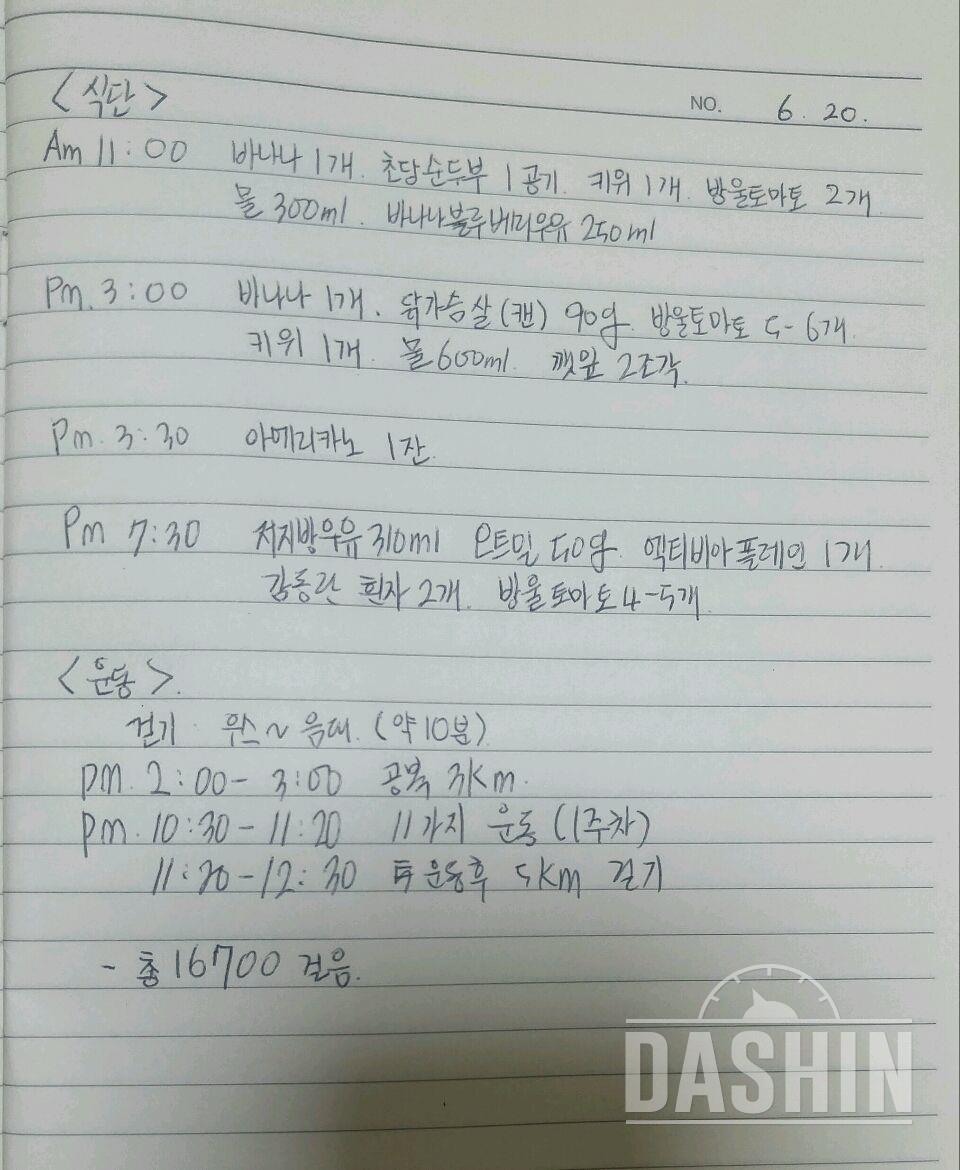 <식단>
NO. 6. 20.
Am 11:00 바나나 1개. 초당순두부 1공기. 키위 1개. 방울토마토 2개
물 300ml. 바나나블루베리우유 250ml
Pm. 3:00 바나나 1개. 닭가슴살(캔) 90g. 방울토마토 5-6개.
키위 1개. 물 600ml. 깻잎 2조각.
Pm. 3:30 아메리카노 1잔.
Pm 7:30 저지방우유 310ml 오트밀 50g. 엑티비아플레인 1개.
감동란 흰자 2개. 방울토마토 4-5개.
<운동>.
걷기 ~ 음대. (약 10분)
pm. 2:00 - 3:00 공복 3km.
pm. 10:30 - 11:20 11가지 운동 (1주차)
11:20 - 12:30 운동후 5km 걷기
- 총 16700 걸음.
DASHIN